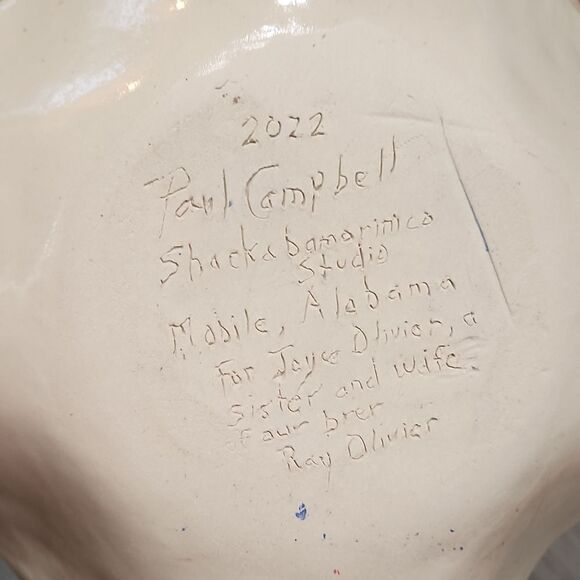 2022
Paul Campbell
Shackabamarinico
Studio
Mobile, Alabama
For Joyce Olivier, a
sister and wife
of our brer
Ray Olivier